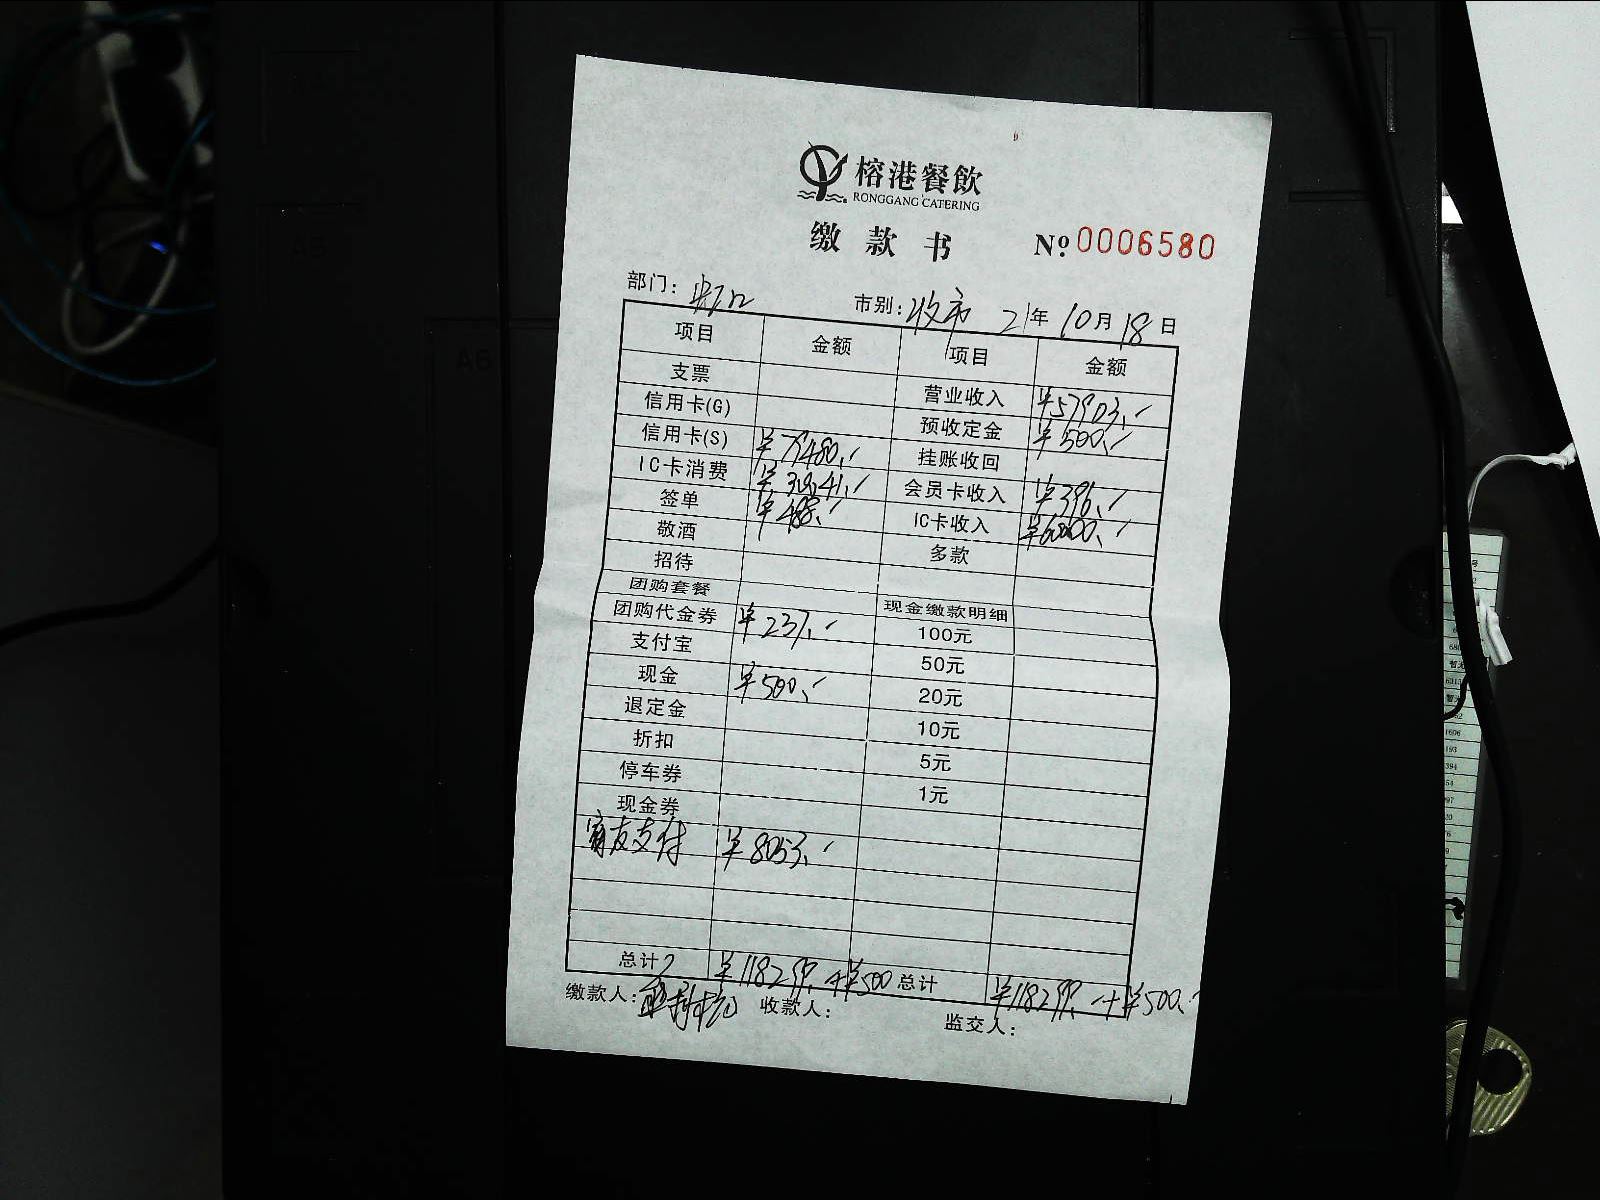 榕港餐飲
RONGGANG CATERING
缴款书 № 0006580
部门: 市别: 收市 21年10月18日
项目 金额 项目 金额
支票 营业收入 ¥57903.-
信用卡(G) 预收定金 ¥500.-
信用卡(S) ¥79480.- 挂账收回
IC卡消费 ¥30041.- 会员卡收入 ¥396.-
签单 ¥488.- IC卡收入 ¥60000.-
敬酒 多款
招待
团购套餐 现金缴款明细
团购代金券 ¥237.- 100元
支付宝 50元
现金 ¥500.- 20元
退定金 10元
折扣 5元
停车券 1元
现金券
富友支付 ¥8053.-
总计 ¥118299.+¥500 总计 ¥118299.-+¥500.-
缴款人: 收款人: 监交人:
A5
A6